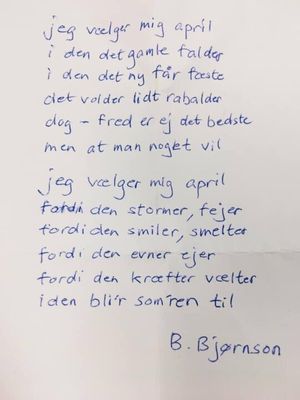 jeg vælger mig april
i den det gamle falder
i den det ny får fæste
det volder lidt rabalder
dog - fred er ej det bedste
men at man noget vil
jeg vælger mig april
fordi den stormer, fejer
fordi den smiler, smelter
fordi den evner ejer
fordi den kræfter vælter
i den bli'r som'ren til
B. Bjørnson